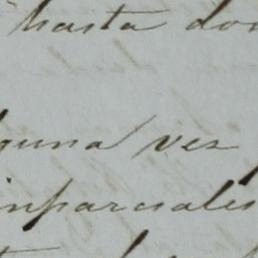 hasta don
guna vez
inparciales